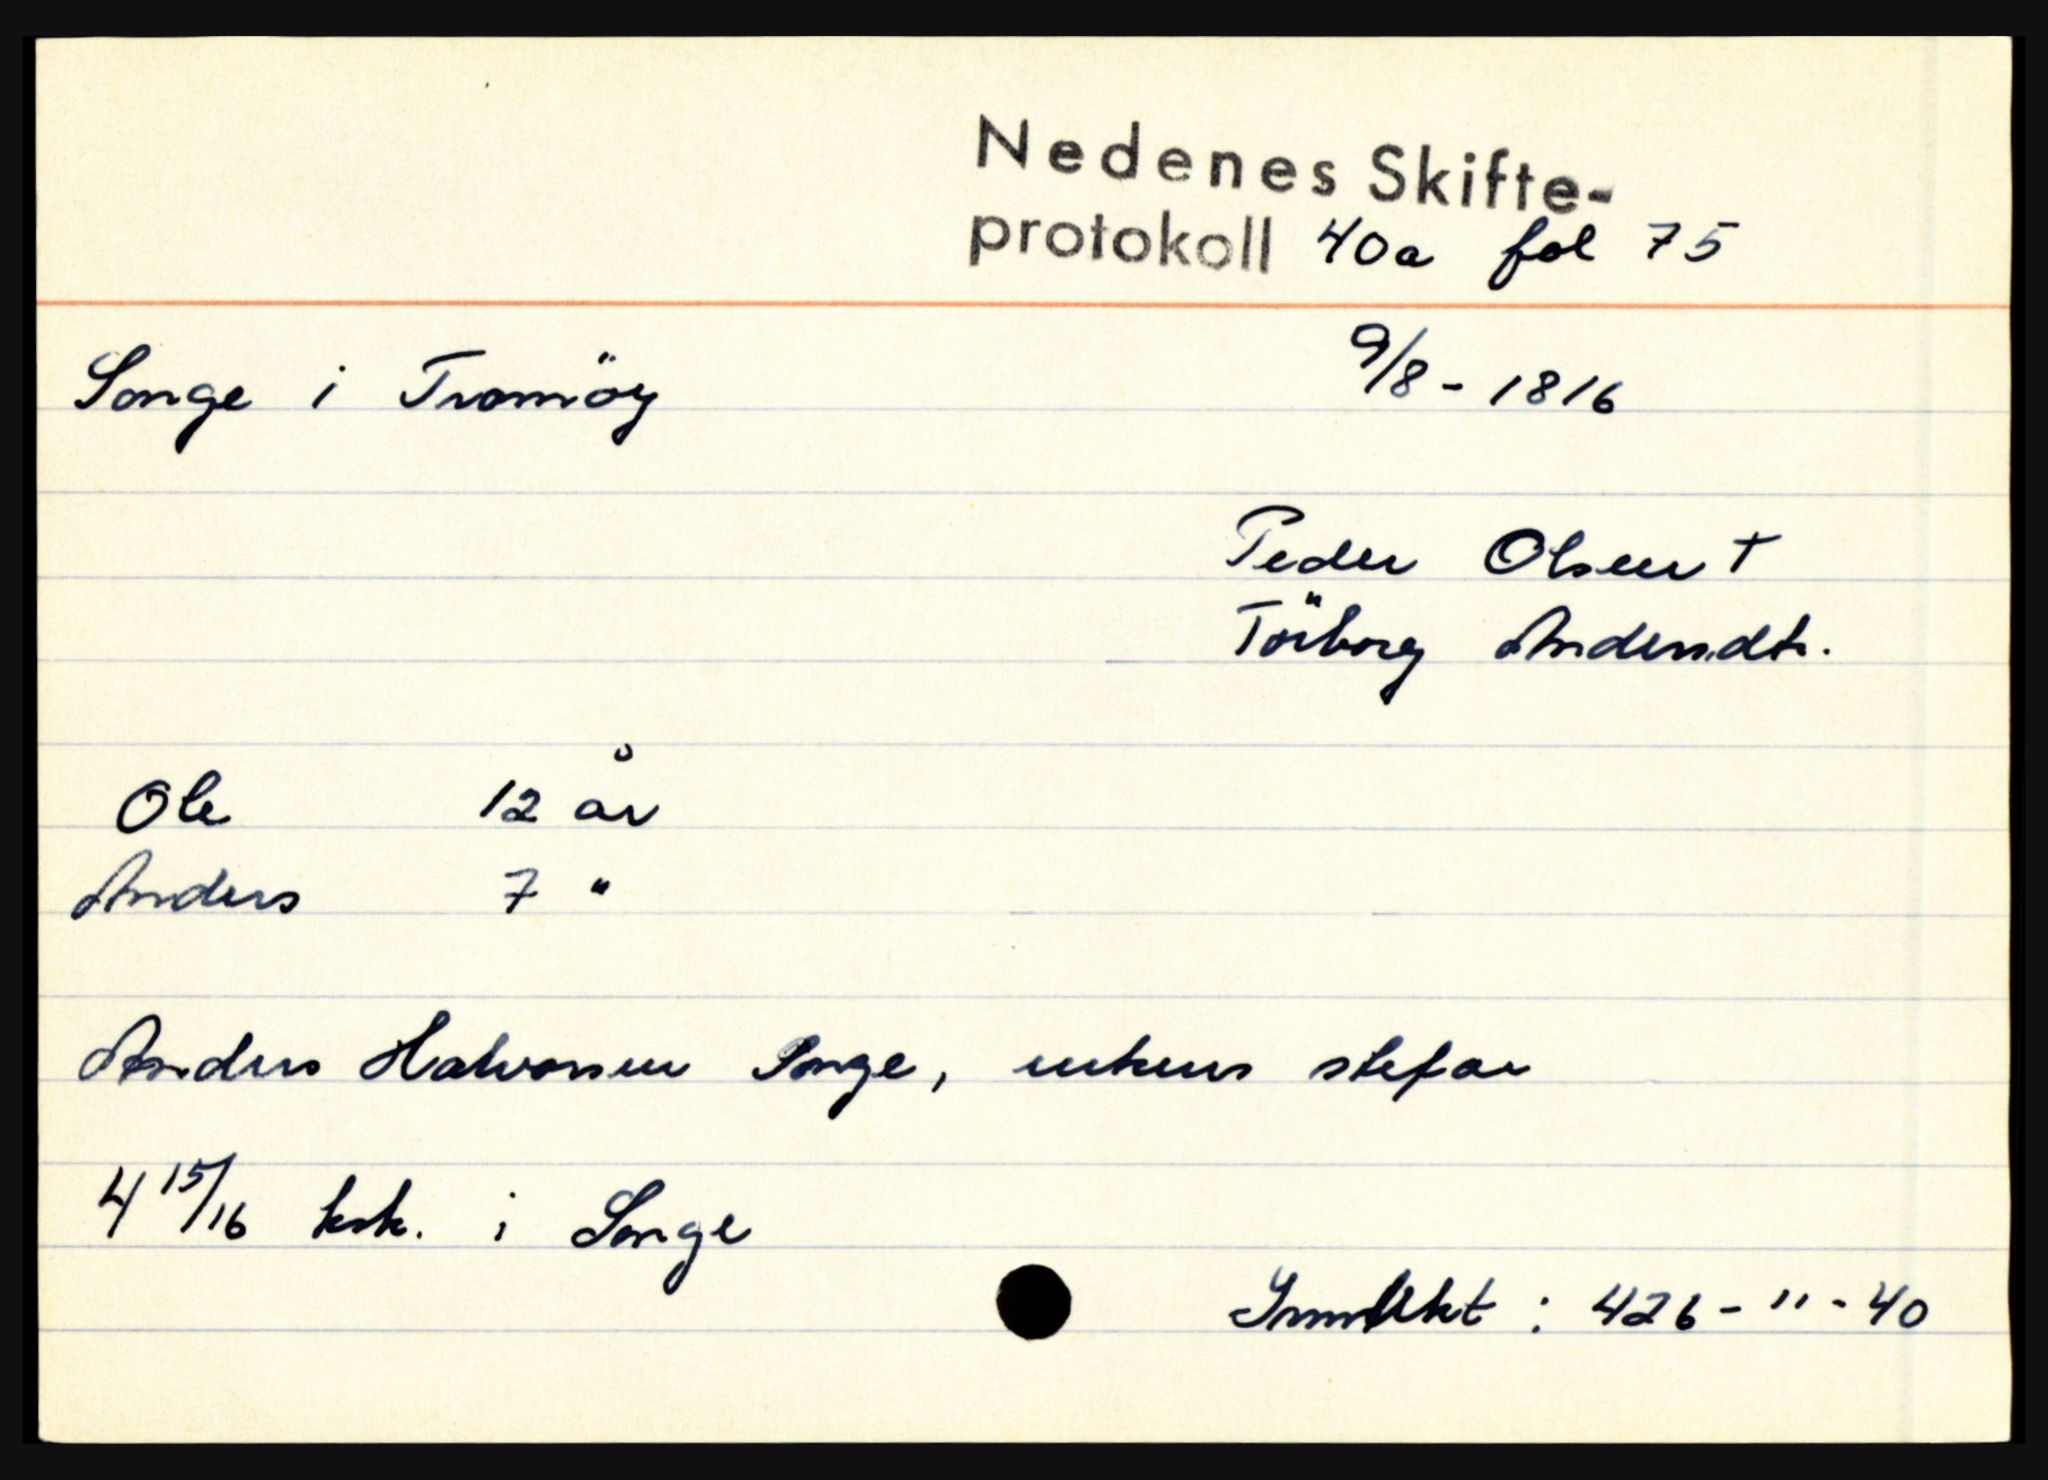 Nedenes Skifte-
protokoll 40a fol 75
Songe i Tromöy 9/8 - 1816
Peder Olsen †
Törborg Andersdtr.
Ole 12 år
Anders 7 "
Anders Halvorsen Songe, enkens stefar
4 15/16 ksk. i Songe
Inntekt : 426 - " - 40